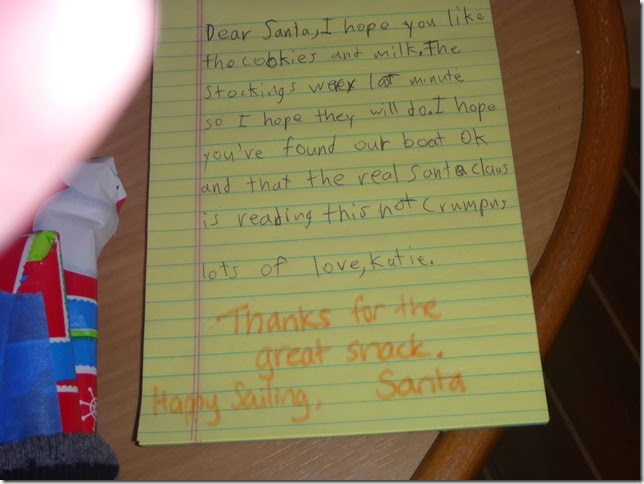 Dear Santa, I hope you like
the cookies and milk. The
Stockings were last minute
so I hope they will do. I hope
you've found our boat OK
and that the real santa claus
is reading this not Crumpus
lots of love, Katie.
Thanks for the
great snack.
Happy Sailing, Santa